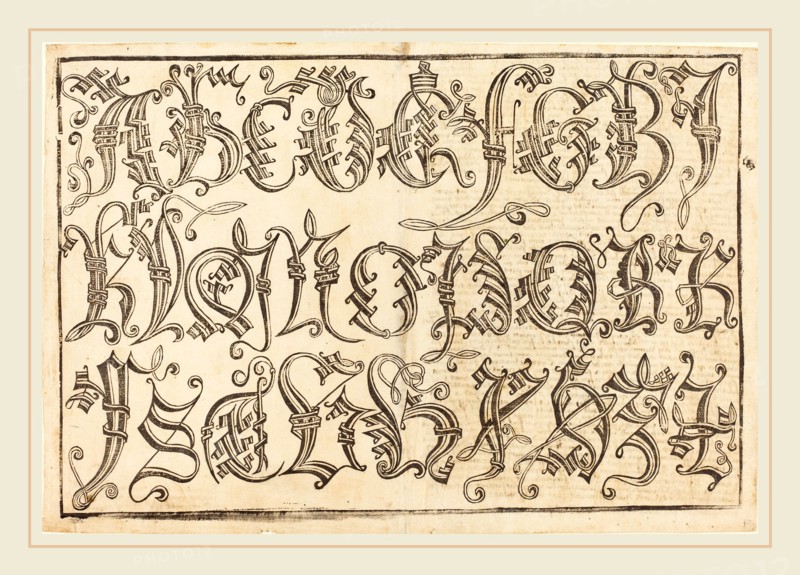 A B C D E F G H I
K L M N O P Q R R
S S T
X Y Z Z